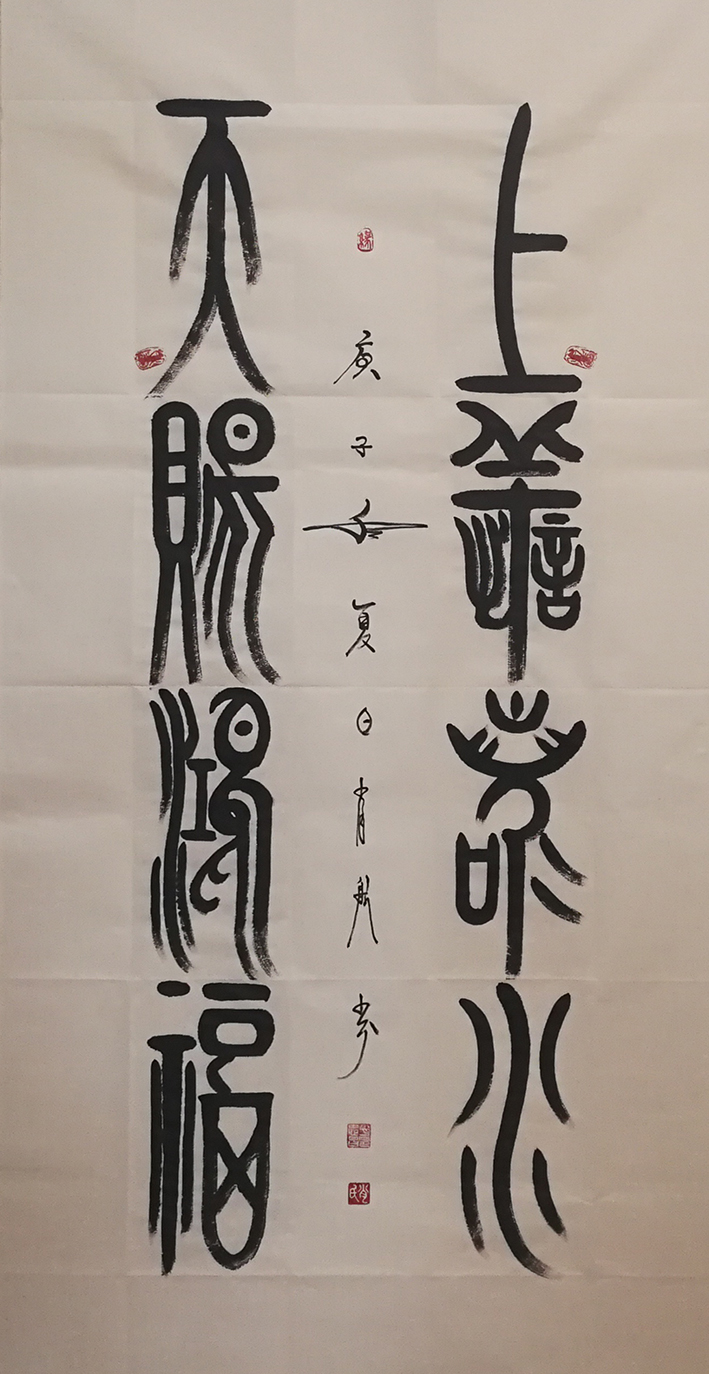 上善若水
天賜鴻福
庚子年夏日肖